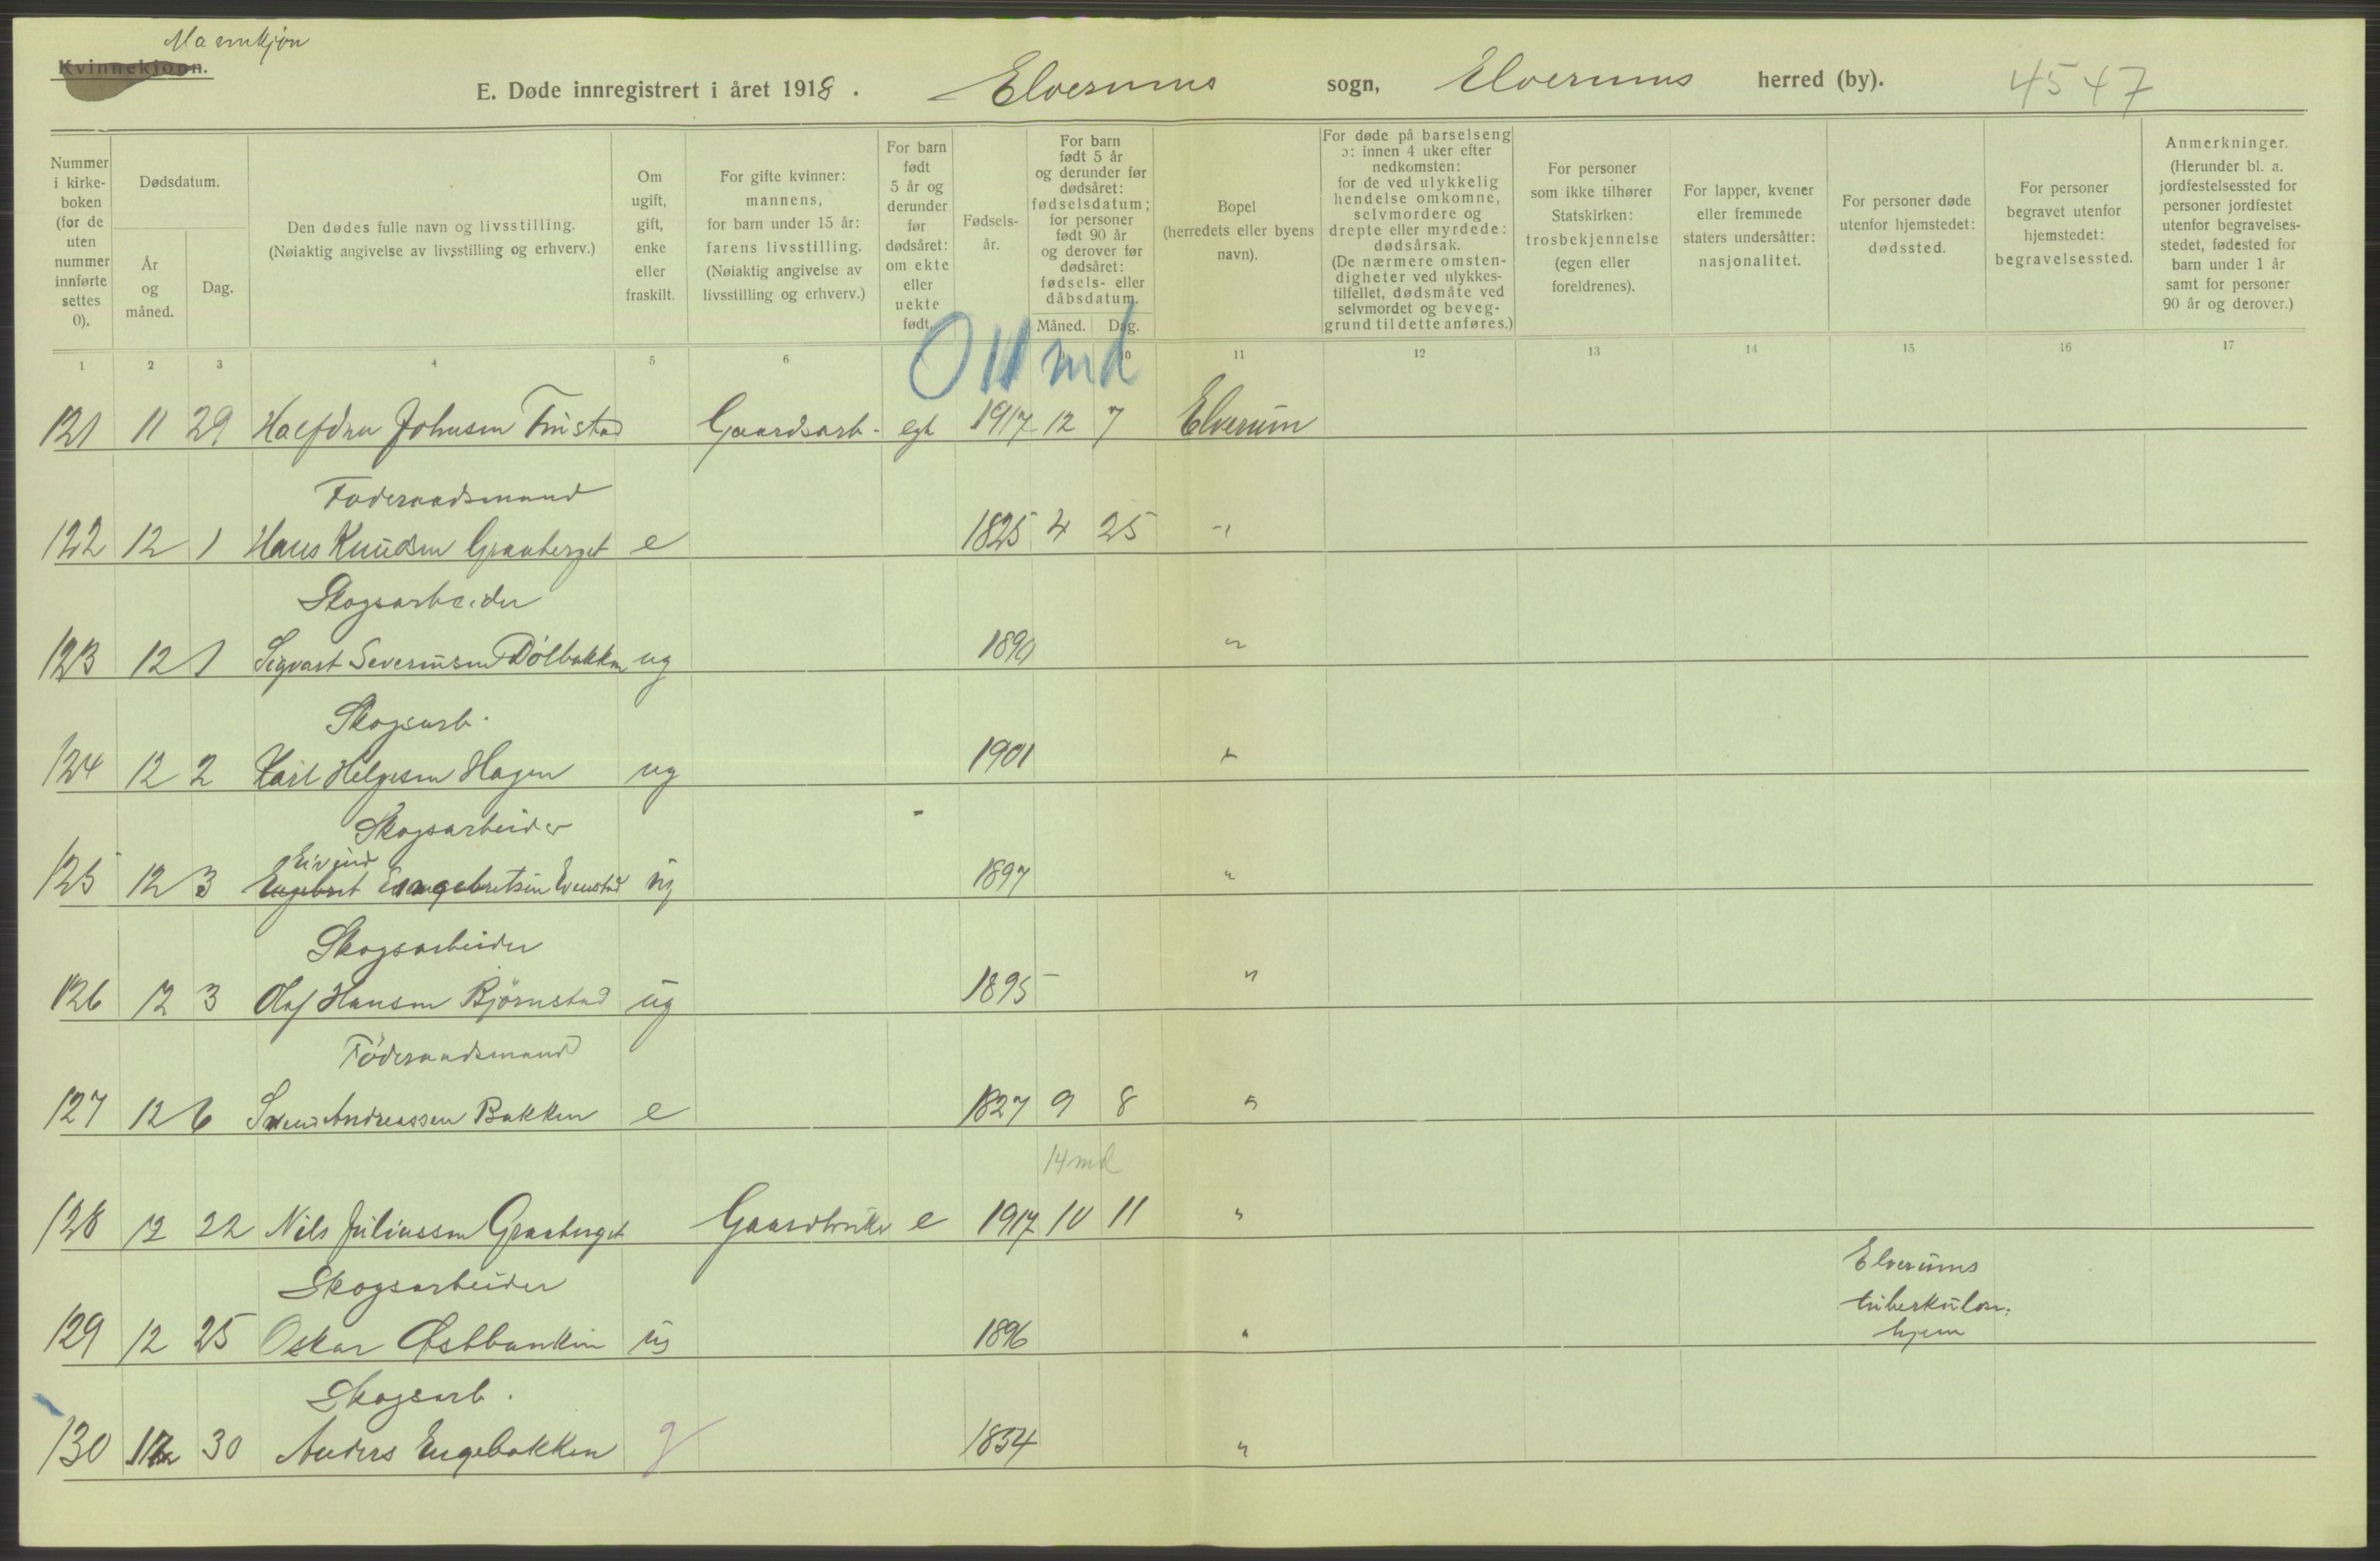 Mannkjøn
Kvinnekjønn.
E. Døde innregistrert i året 1918. Elverums sogn, Elverums herred (by). 4547
Nummer i kirke-boken (for de uten nummer innførte settes 0).
Dødsdatum.
År og måned.
Dag.
Den dødes fulle navn og livsstilling.
(Nøiaktig angivelse av livsstilling og erhverv.)
Om ugift, gift, enke eller fraskilt.
For gifte kvinner: mannens, for barn under 15 år: farens livsstilling. (Nøiaktig angivelse av livsstilling og erhverv.)
For barn født 5 år og derunder før dødsåret: om ekte eller uekte født.
Fødsels-år.
For barn født 5 år og derunder før dødsåret: fødselsdatum; for personer født 90 år og derover før dødsåret: fødsels- eller dåbsdatum.
Måned. Dag.
Bopel (herredets eller byens navn).
For døde på barselseng ɔ: innen 4 uker efter nedkomsten: for de ved ulykkelig hendelse omkomne, selvmordere og drepte eller myrdede: dødsårsak. (De nærmere omsten-digheter ved ulykkes-tilfellet, dødsmåte ved selvmordet og beveg-grund til dette anføres.)
For personer som ikke tilhører Statskirken: trosbekjennelse (egen eller foreldrenes).
For lapper, kvener eller fremmede staters undersåtter: nasjonalitet.
For personer døde utenfor hjemstedet: dødssted.
For personer begravet utenfor hjemstedet: begravelsessted.
Anmerkninger. (Herunder bl. a. jordfestelsessted for personer jordfestet utenfor begravelses-stedet, fødested for barn under 1 år samt for personer 90 år og derover.)
1 2 3 4 5 6 10 11 12 13 14 15 16 17
0 11 md
121 11 29 Halfdan Johnsen Finstad Gaardsarb. egt 1917 12 7 Elverum
Foderaadsmand
122 12 1 Hans Knudsen Graaberget e 1825 4 25 -"
Skogsarbeider
123 12 1 Sigvart Severinsen Dölbakken ug 1890 "
Skogsarb.
124 12 2 Karl Helgesen Hagen ug 1901 "
Skogsarbeider
Eivind
125 12 3 Engebret Engebretsen Evenstad ug 1897 "
Skogsarbeider
126 12 3 Olaf Hansen Björnstad ug 1895 "
Föderaadsmand
127 12 6 Svend Andreassen Bakken e 1827 9 8 "
14 md
128 12 22 Nils Juliussen Graaberget Gaardbruker e 1917 10 11 "
Skogsarbeider Elverums
tuberkulose-
129 12 25 Oskar Østbanken ug 1896 " hjem
Skogsarb.
130 12 30 Anders Engebakken g 1854 "